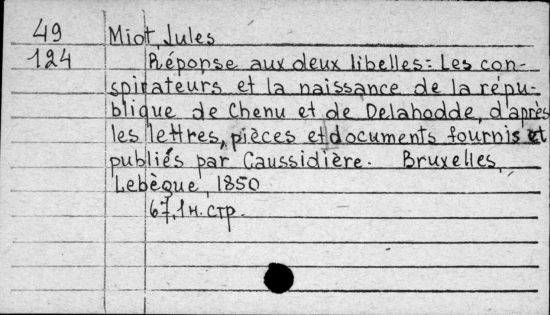 49 Miot, Jules
124 Réponse aux deux libelles: Les con-
spirateurs et la naissance de la répu-
blique de Chenu et de Delahodde, d'après
les lettres, pièces et documents fournis et
publiés par Caussidière. Bruxelles,
Lebègue, 1850
67, 1 н. стр.